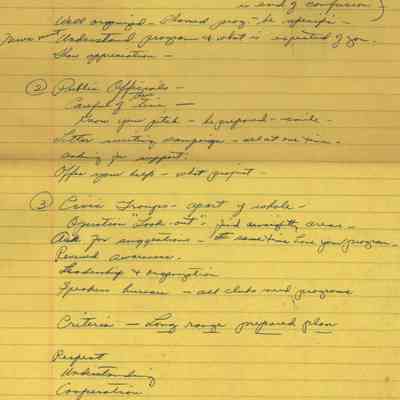 is end of confusion)
Well organized - Planned prog - be specific -
News - Understand program & what is expected of you.
Show appreciation -
② Public Officials -
Careful of their time -
Know your pitch - be prepared - smile -
Letter writing campaign - all at one time -
asking for support.
Offer your help - what project -
③ Civic Groups - apart of whole -
Operation "Look-out" - find unsightly areas -
Ask for suggestions - the same time have your program -
Reward awareness.
Leadership & organization
Speakers bureau - all clubs need programs
Criteria - Long range prepared plan
Respect
Understanding
Cooperation